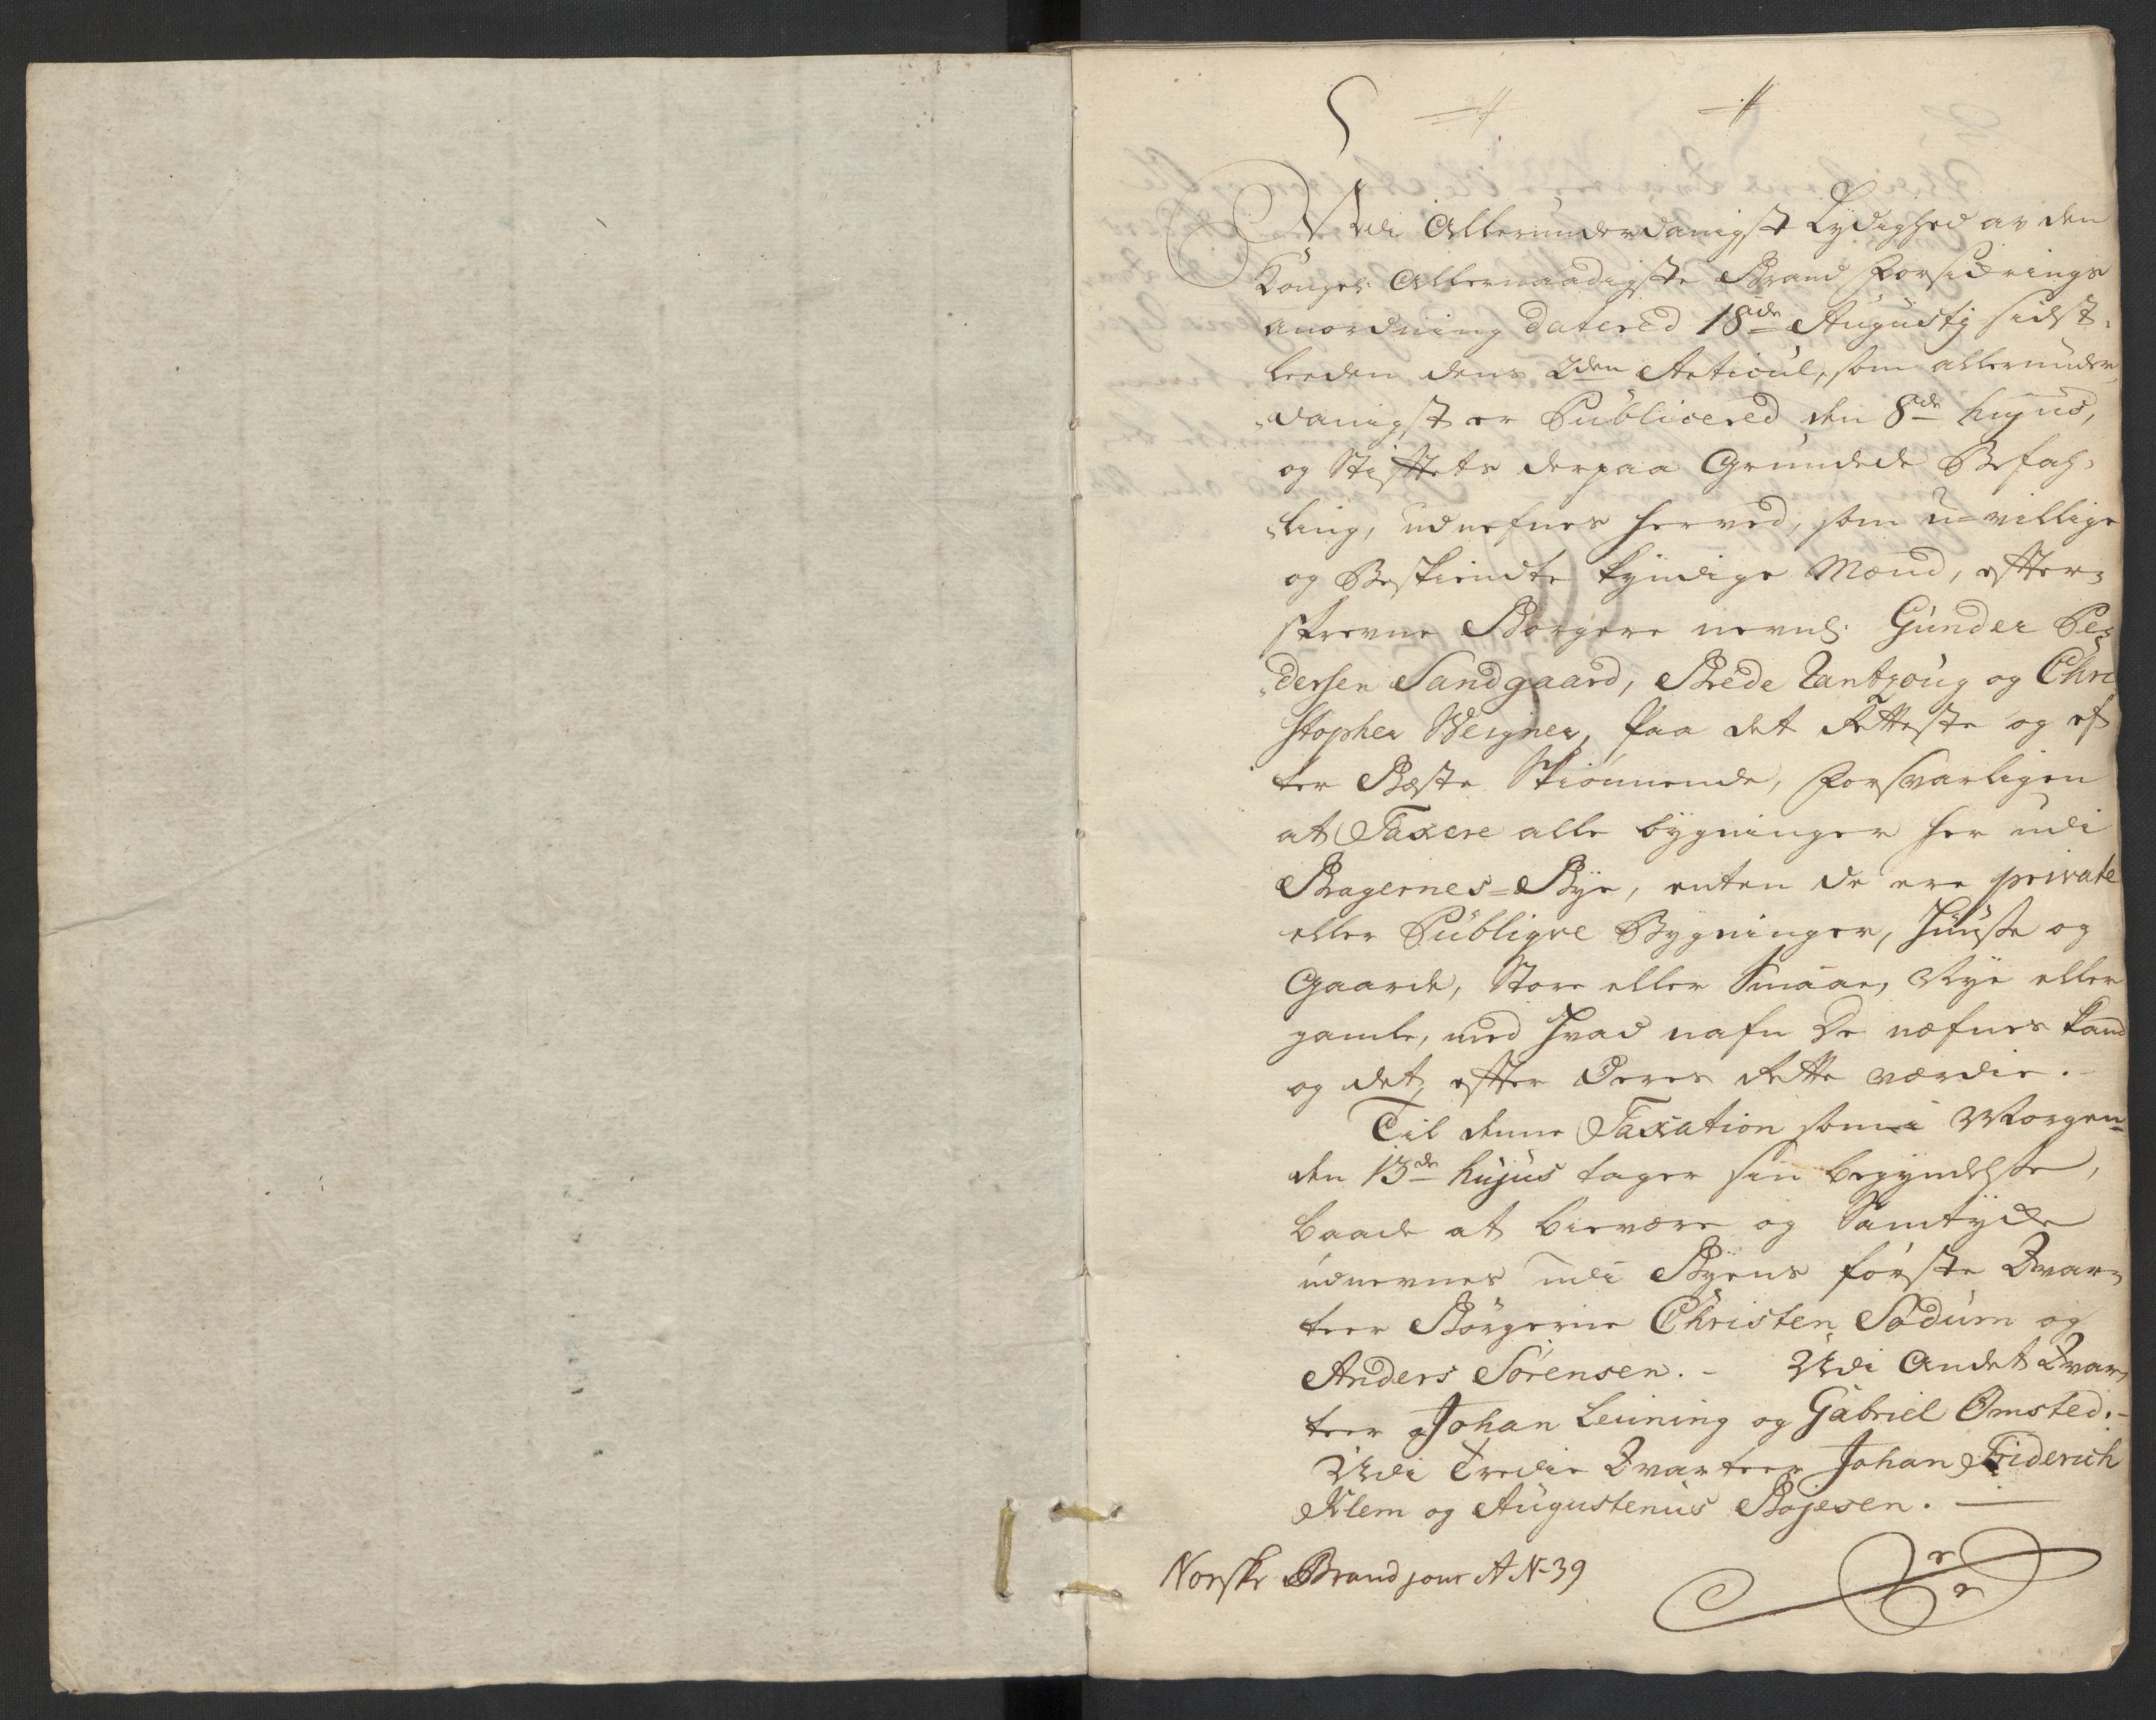 Udi Allerunderdanigst Lydighed av den
Kongel: Allernaadigste Brand Forsickrings
anordning Datered 18de Augusty sidst-
leeden dens 2den Articul, som allerunder-
danigst er Publicered den 8de hujus,
og Stiftets derpaa Grundede Befah-
ling, udnefnes herved, som u-villige
og Beskiendte kyndige Mænd, efter-
skrevne Borgere nevnl: Gunder Pe-
dersen Sandgaard, Brede Rantzoug og Chri
stopher Wegner, paa det Retteste og ef
ter Beste Skiønnende, forsvarligen
at Taxere alle bygninger her udi
Bragernes-Bye, enten de ere private
eller Publiqve Bygninger, Huuse og
Gaarde, Store eller Smaae, Nye eller
gamle, med Hvad nafn De næfnes kand
og det, efter Deres Rette værdie.-
Til denne Taxation som i Morgen
den 13de hujus tager sin begyndelse,
baade at bievære og Samtycke
udnevnes udi Byens første Qvar-
teer Borgerne Christen Sødum og
Anders Sørensen.- Udi Andet Qvar-
teer Johan Leuning og Gabriel Omsted.-
Udi Tredie Qvarteer Johan Friderich
Klem og Augustenus Bojesen.-
Norske Brand jour A N-39